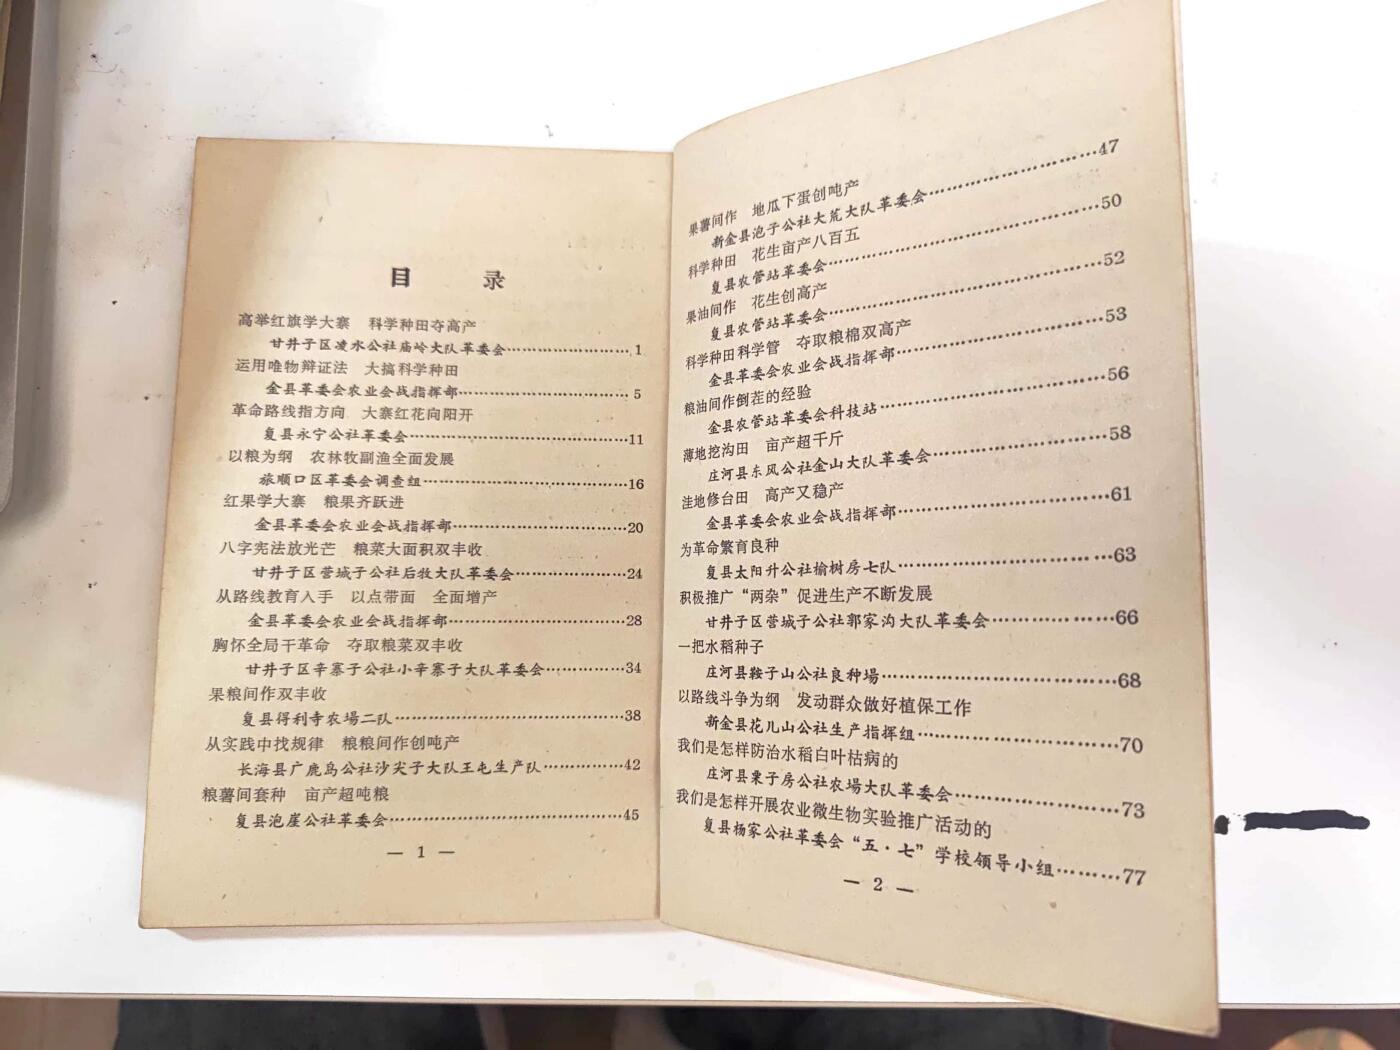 目 录
高举红旗学大寨 科学种田夺高产
甘井子区凌水公社庙岭大队革委会…………………1
运用唯物辩证法 大搞科学种田
金县革委会农业会战指挥部…………………………5
革命路线指方向 大寨红花向阳开
复县永宁公社革委会…………………………………11
以粮为纲 农林牧副渔全面发展
旅顺口区革委会调查组………………………………16
红果学大寨 粮果齐跃进
金县革委会农业会战指挥部…………………………20
八字宪法放光芒 粮菜大面积双丰收
甘井子区营城子公社后牧大队革委会………………24
从路线教育入手 以点带面 全面增产
金县革委会农业会战指挥部…………………………28
胸怀全局干革命 夺取粮菜双丰收
甘井子区辛寨子公社小辛寨子大队革委会…………34
果粮间作双丰收
复县得利寺农場二队…………………………………38
从实践中找规律 粮粮间作创吨产
长海县广鹿岛公社沙尖子大队王屯生产队…………42
粮薯间套种 亩产超吨粮
复县泡崖公社革委会…………………………………45
— 1 —
果薯间作 地瓜下蛋创吨产
新金县泡子公社大荒大队革委会……………………47
科学种田 花生亩产八百五
复县农管站革委会……………………………………50
果油间作 花生创高产
复县农管站革委会……………………………………52
科学种田科学管 夺取粮棉双高产
金县革委会农业会战指挥部…………………………53
粮油间作倒茬的经验
金县农管站革委会科技站……………………………56
薄地挖沟田 亩产超千斤
庄河县东风公社金山大队革委会……………………58
洼地修台田 高产又稳产
金县革委会农业会战指挥部…………………………61
为革命繁育良种
复县太阳升公社榆树房七队…………………………63
积极推广“两杂”促进生产不断发展
甘井子区营城子公社郭家沟大队革委会……………66
一把水稻种子
庄河县鞍子山公社良种場……………………………68
以路线斗争为纲 发动群众做好植保工作
新金县花儿山公社生产指挥组………………………70
我们是怎样防治水稻白叶枯病的
庄河县栗子房公社农場大队革委会…………………73
我们是怎样开展农业微生物实验推广活动的
复县杨家公社革委会“五·七”学校领导小组………77
— 2 —